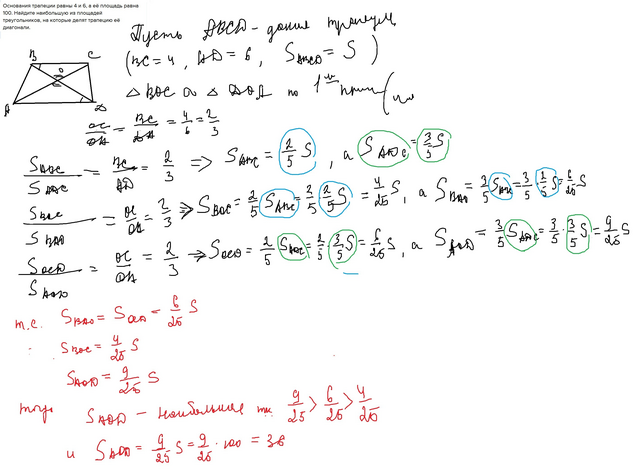 Основания трапеции равны 4 и 6, а её площадь равна
100. Найдите наибольшую из площадей
треугольников, на которые делят трапецию её
диагонали.
B C
O
A D
Пусть ABCD – данная трапеция
(BC = 4, AD = 6, S_ABCD = S)
△ BOC ∾ △ DOA по 1
OC/OA = BC/DA = 4/6 = 2/3
S_ABC/S_ADC = BC/AD = 2/3 => S_ABC = 2/5 S, а S_ADC = 3/5 S
S_BOC/S_BAO = OC/OA = 2/3 => S_BOC = 2/5 S_ABC = 2/5 · 2/5 S = 4/25 S, а S_BAO = 3/5 S_ABC = 3/5 · 2/5 S = 6/25 S
S_OCD/S_AOD = OC/OA = 2/3 => S_OCD = 2/5 S_ADC = 2/5 · 3/5 S = 6/25 S, а S_AOD = 3/5 S_ADC = 3/5 · 3/5 S = 9/25 S
т.е. S_BAO = S_OCD = 6/25 S
S_BOC = 4/25 S
S_AOD = 9/25 S
тогда S_AOD – наибольшая т.к. 9/25 > 6/25 > 4/25
и S_AOD = 9/25 S = 9/25 · 100 = 36